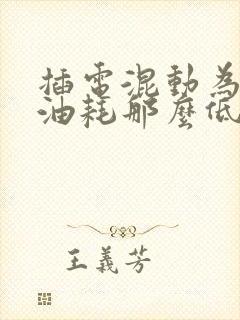 插電混動為
油耗那麼低
王義芳